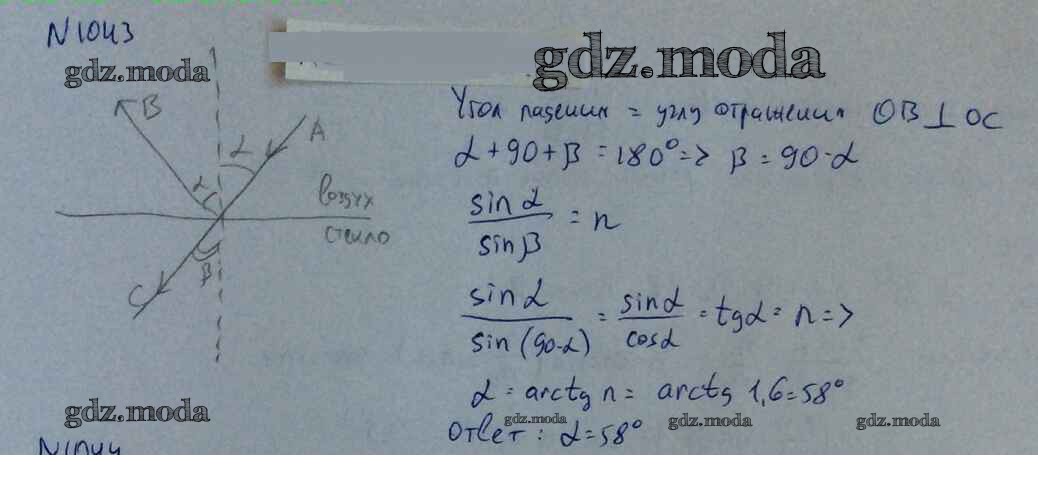 N1043
gdz.moda
gdz.moda
B
A
α
α
воздух
стекло
β
C
Угол падения = углу отражения OB⊥OC
α+90+β=180°=> β=90-α
sinα/sinβ = n
sinα/sin(90-α) = sinα/cosα = tgα = n =>
α = arctg n = arctg 1,6=58°
gdz.moda
gdz.moda
gdz.moda
gdz.moda
Ответ: α=58°
N1044